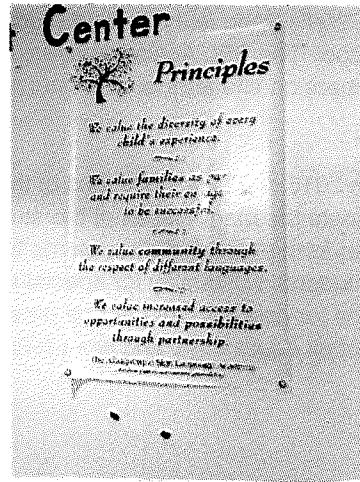 Center
Principles
We value the diversity of every
child's experience.
We value families as
and require their
to be successful.
We value community through
the respect of different languages.
We value increased access to
opportunities and possibilities
through partnership.
Sign Language